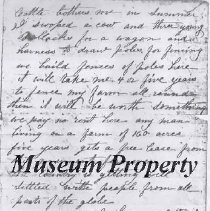 Cattle bothers me in summer
I swoped a cow and three young
bullocks for a wagon and
harness to draw poles for fencing
we build fences of poles here
it will take me 4 or five years
to fence my farm all round
then it will be worth something
we pay no rent here any man
living on a farm of 160 acres
five years gets a free lease from
Museum Property
settled with people from all
parts of the globe